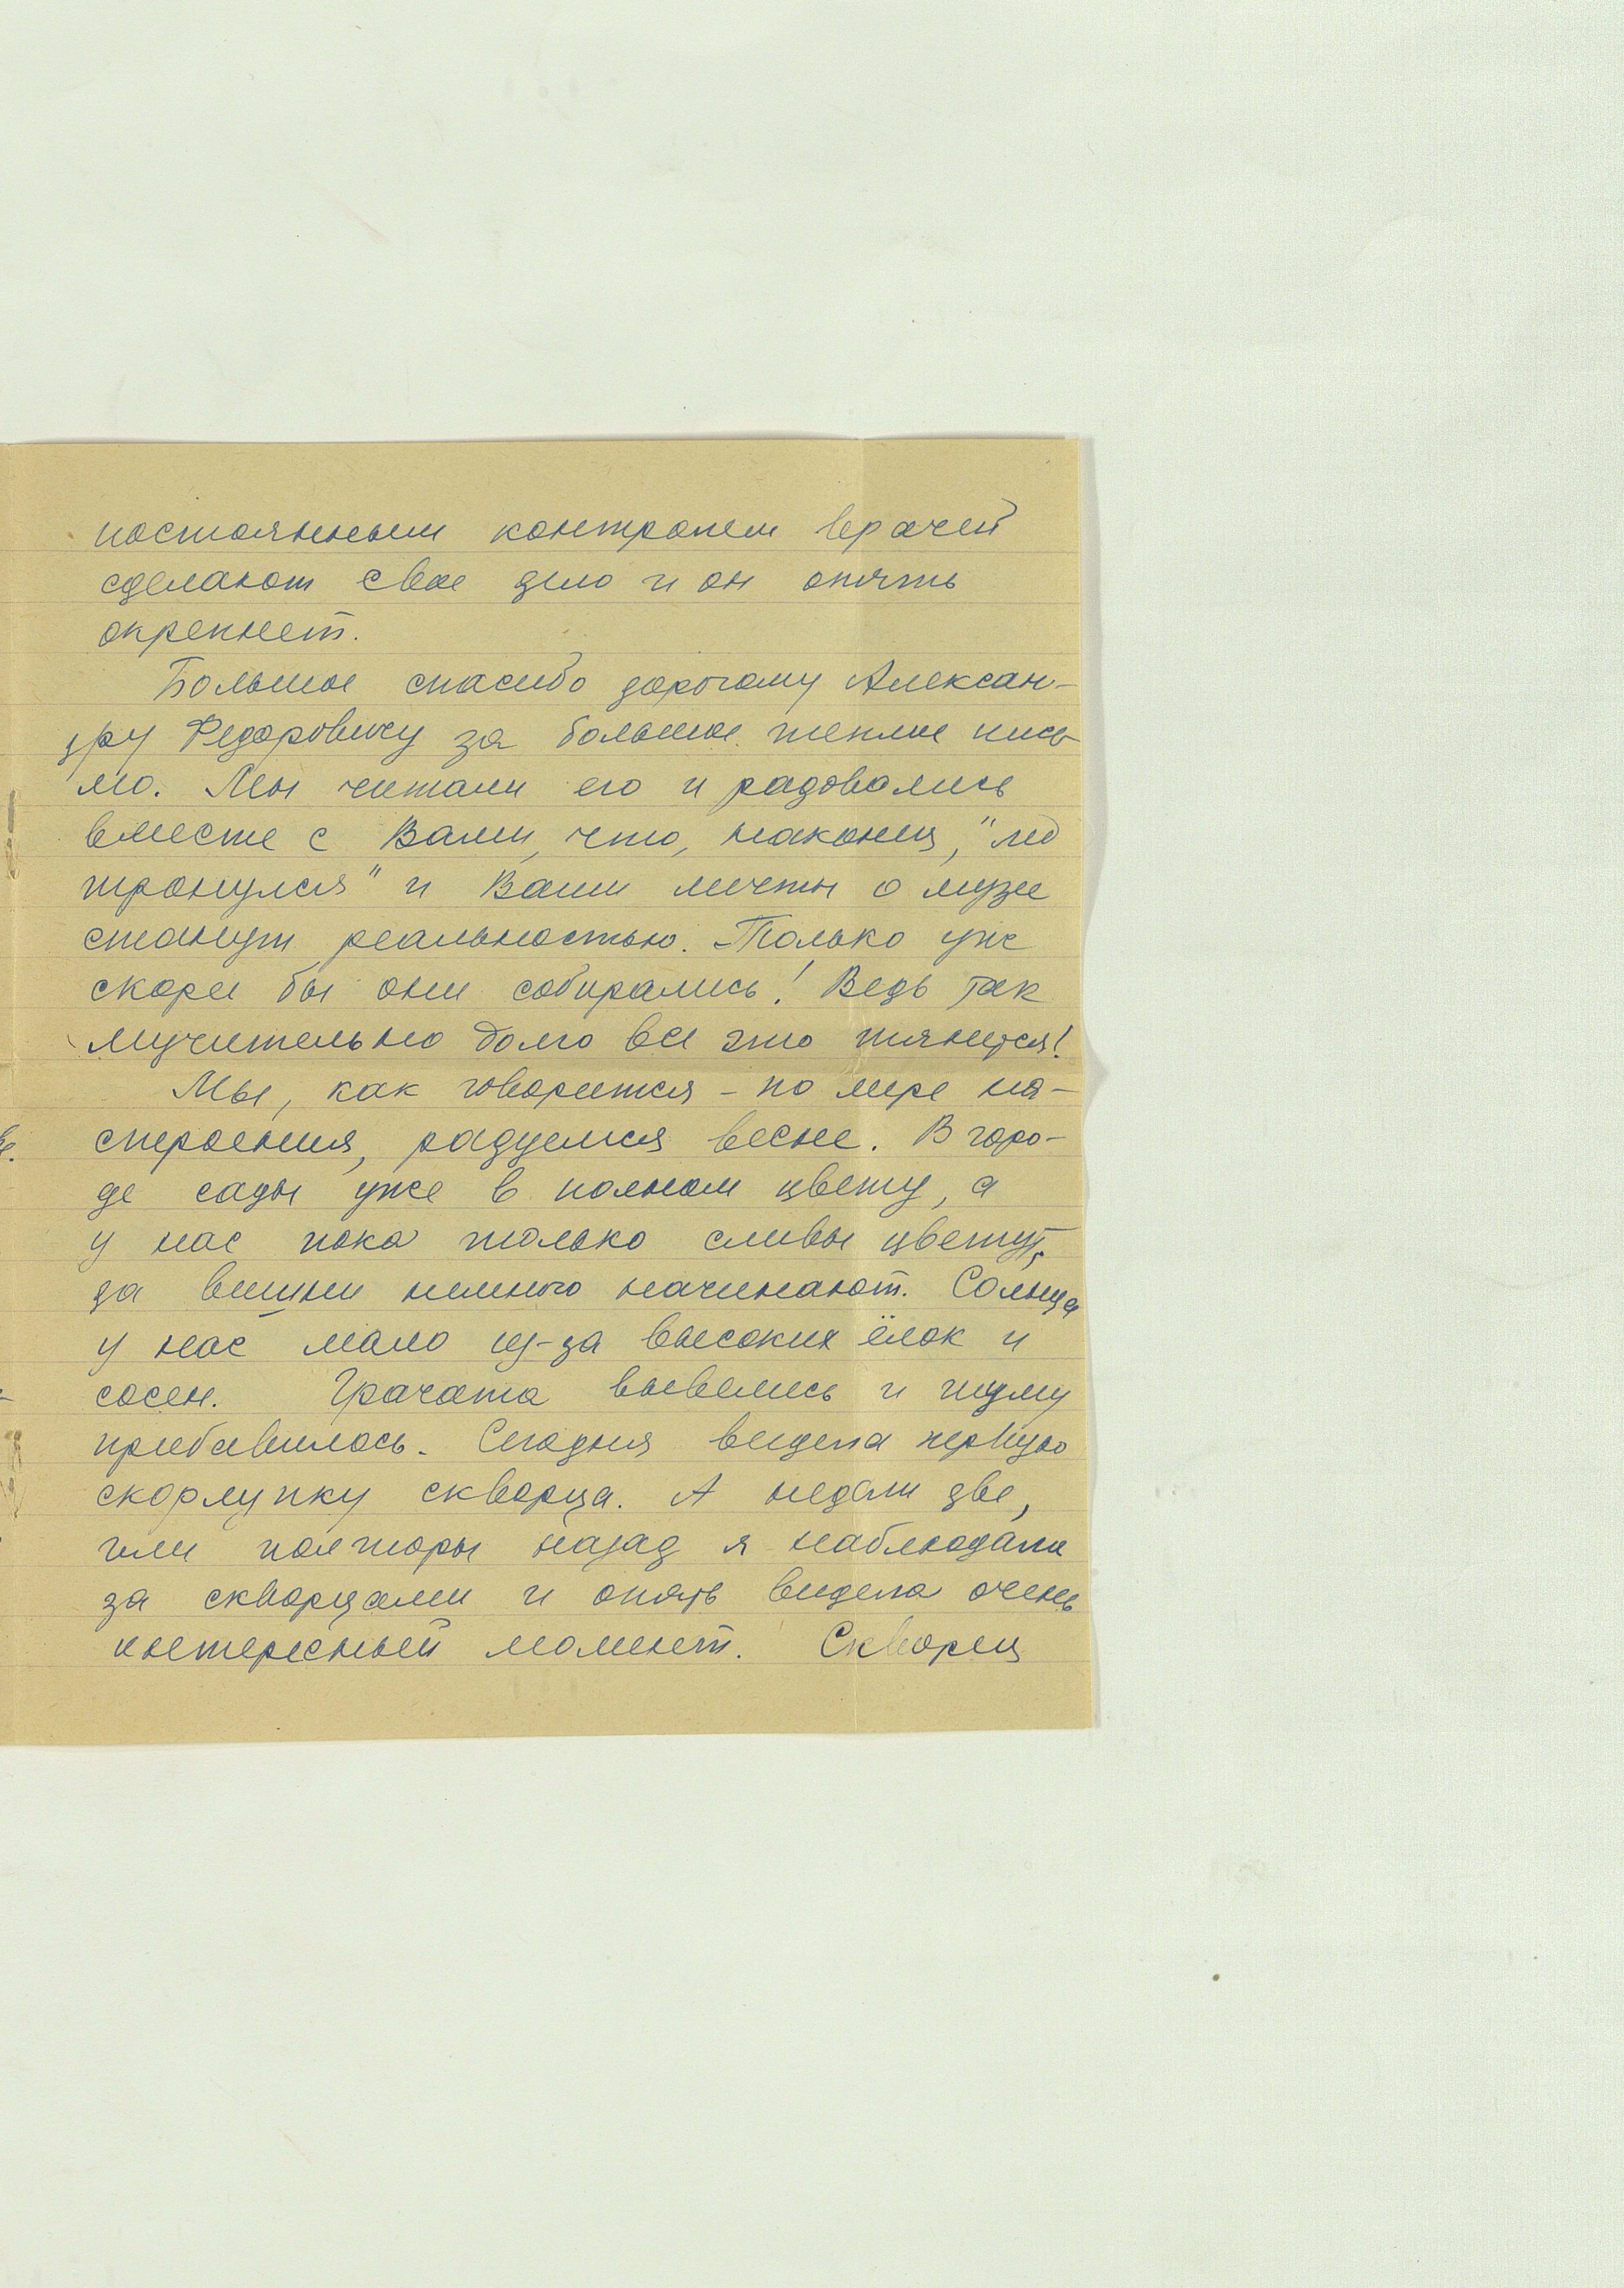 постоянным контролем врачей
сделают свое дело и он опять
окрепнет.
Большое спасибо дорогому Алексан-
дру Федоровичу за большое теплое пись-
мо. Мы читали его и радовались
вместе с Вами, что, наконец, "лед
тронулся" и Ваши мечты о музее
станут реальностью. Только уж
скорее бы они собирались! Ведь так
мучительно долго все это тянется!
Мы, как говорится - по мере на-
строения, радуемся весне. В горо-
де сады уже в полном цвету, а
у нас пока только сливы цветут,
да вишни немного начинают. Солнца
у нас мало из-за высоких ёлок и
сосен. Грачата вывелись и шуму
прибавилось. Сегодня видела первую
скорлупку скворца. А недели две,
или полторы назад я наблюдала
за скворцами и опять видела очень
интересный момент. Скворец